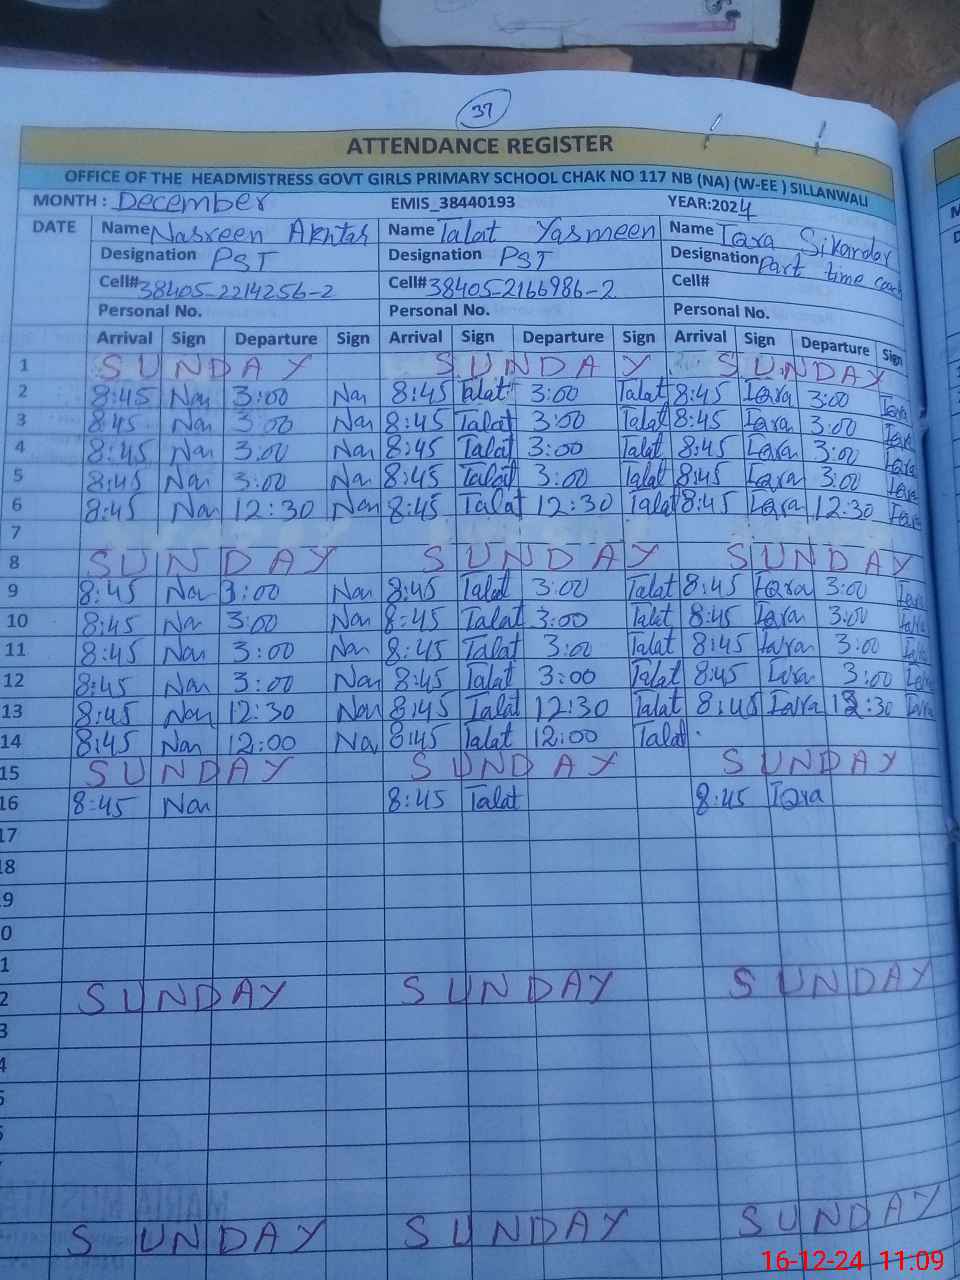 37
ATTENDANCE REGISTER
OFFICE OF THE HEADMISTRESS GOVT GIRLS PRIMARY SCHOOL CHAK NO 117 NB (NA) (W-EE ) SILLANWALI
MONTH : December EMIS_38440193 YEAR:2024
DATE Name Nasreen Akhtar Name Talat Yasmeen Name Iqra Sikandar
Designation PST Designation PST Designation Part time
Cell# 38405-2214256-2 Cell# 38405-2166986-2 Cell#
Personal No. Personal No. Personal No.
Arrival Sign Departure Sign Arrival Sign Departure Sign Arrival Sign Departure Sign
1 SUNDAY SUNDAY SUNDAY
2 8:45 Nas 3:00 Nas 8:45 Talat 3:00 Talat 8:45 Iqra 3:00 Iqra
3 8:45 Nas 3:00 Nas 8:45 Talat 3:00 Talat 8:45 Iqra 3:00 Iqra
4 8:45 Nas 3:00 Nas 8:45 Talat 3:00 Talat 8:45 Iqra 3:00 Iqra
5 8:45 Nas 3:00 Nas 8:45 Talat 3:00 Talat 8:45 Iqra 3:00 Iqra
6 8:45 Nas 12:30 Nas 8:45 Talat 12:30 Talat 8:45 Iqra 12:30 Iqra
7
8 SUNDAY SUNDAY SUNDAY
9 8:45 Nas 3:00 Nas 8:45 Talat 3:00 Talat 8:45 Iqra 3:00 Iqra
10 8:45 Nas 3:00 Nas 8:45 Talat 3:00 Talat 8:45 Iqra 3:00 Iqra
11 8:45 Nas 3:00 Nas 8:45 Talat 3:00 Talat 8:45 Iqra 3:00 Iqra
12 8:45 Nas 3:00 Nas 8:45 Talat 3:00 Talat 8:45 Iqra 3:00 Iqra
13 8:45 Nas 12:30 Nas 8:45 Talat 12:30 Talat 8:45 Iqra 12:30 Iqra
14 8:45 Nas 12:00 Nas 8:45 Talat 12:00 Talat
15 SUNDAY SUNDAY SUNDAY
16 8:45 Nas 8:45 Talat 8:45 Iqra
17
18
9
0
1
2 SUNDAY SUNDAY SUNDAY
3
4
5
SUNDAY SUNDAY SUNDAY
16-12-24 11.09